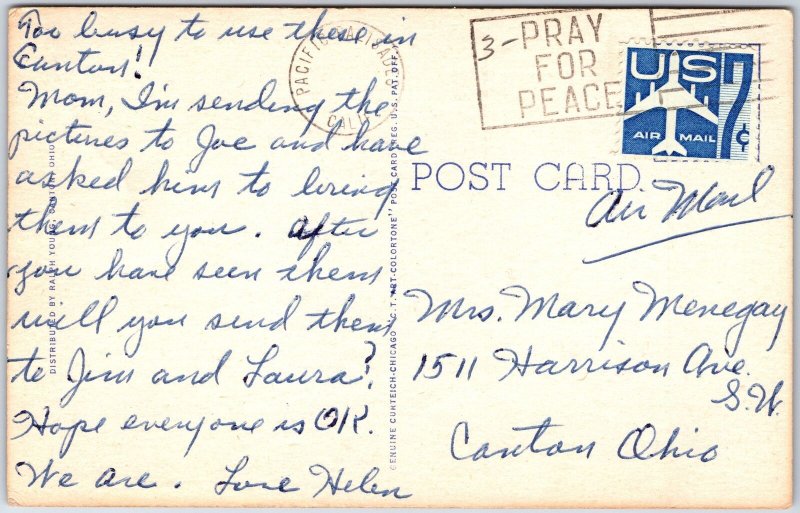 Too busy to use these in
Canton!
Mom, I'm sending the
pictures to Joe and have
asked him to bring
them to you. After
you have seen them
will you send them
to Jim and Laura?
Hope everyone is OK.
We are. Love Helen
DISTRIBUTED BY RALPH YOUNG, CANTON, OHIO
GENUINE CURTEICH-CHICAGO "C.T. ART-COLORTONE" POST CARD (REG. U.S. PAT. OFF.)
PACIFIC PALISADES
CALIF
3-PRAY
FOR
PEACE
US 7¢
AIR MAIL
POST CARD
Air Mail
Mrs. Mary Menegay
1511 Harrison Ave.
S.W.
Canton Ohio